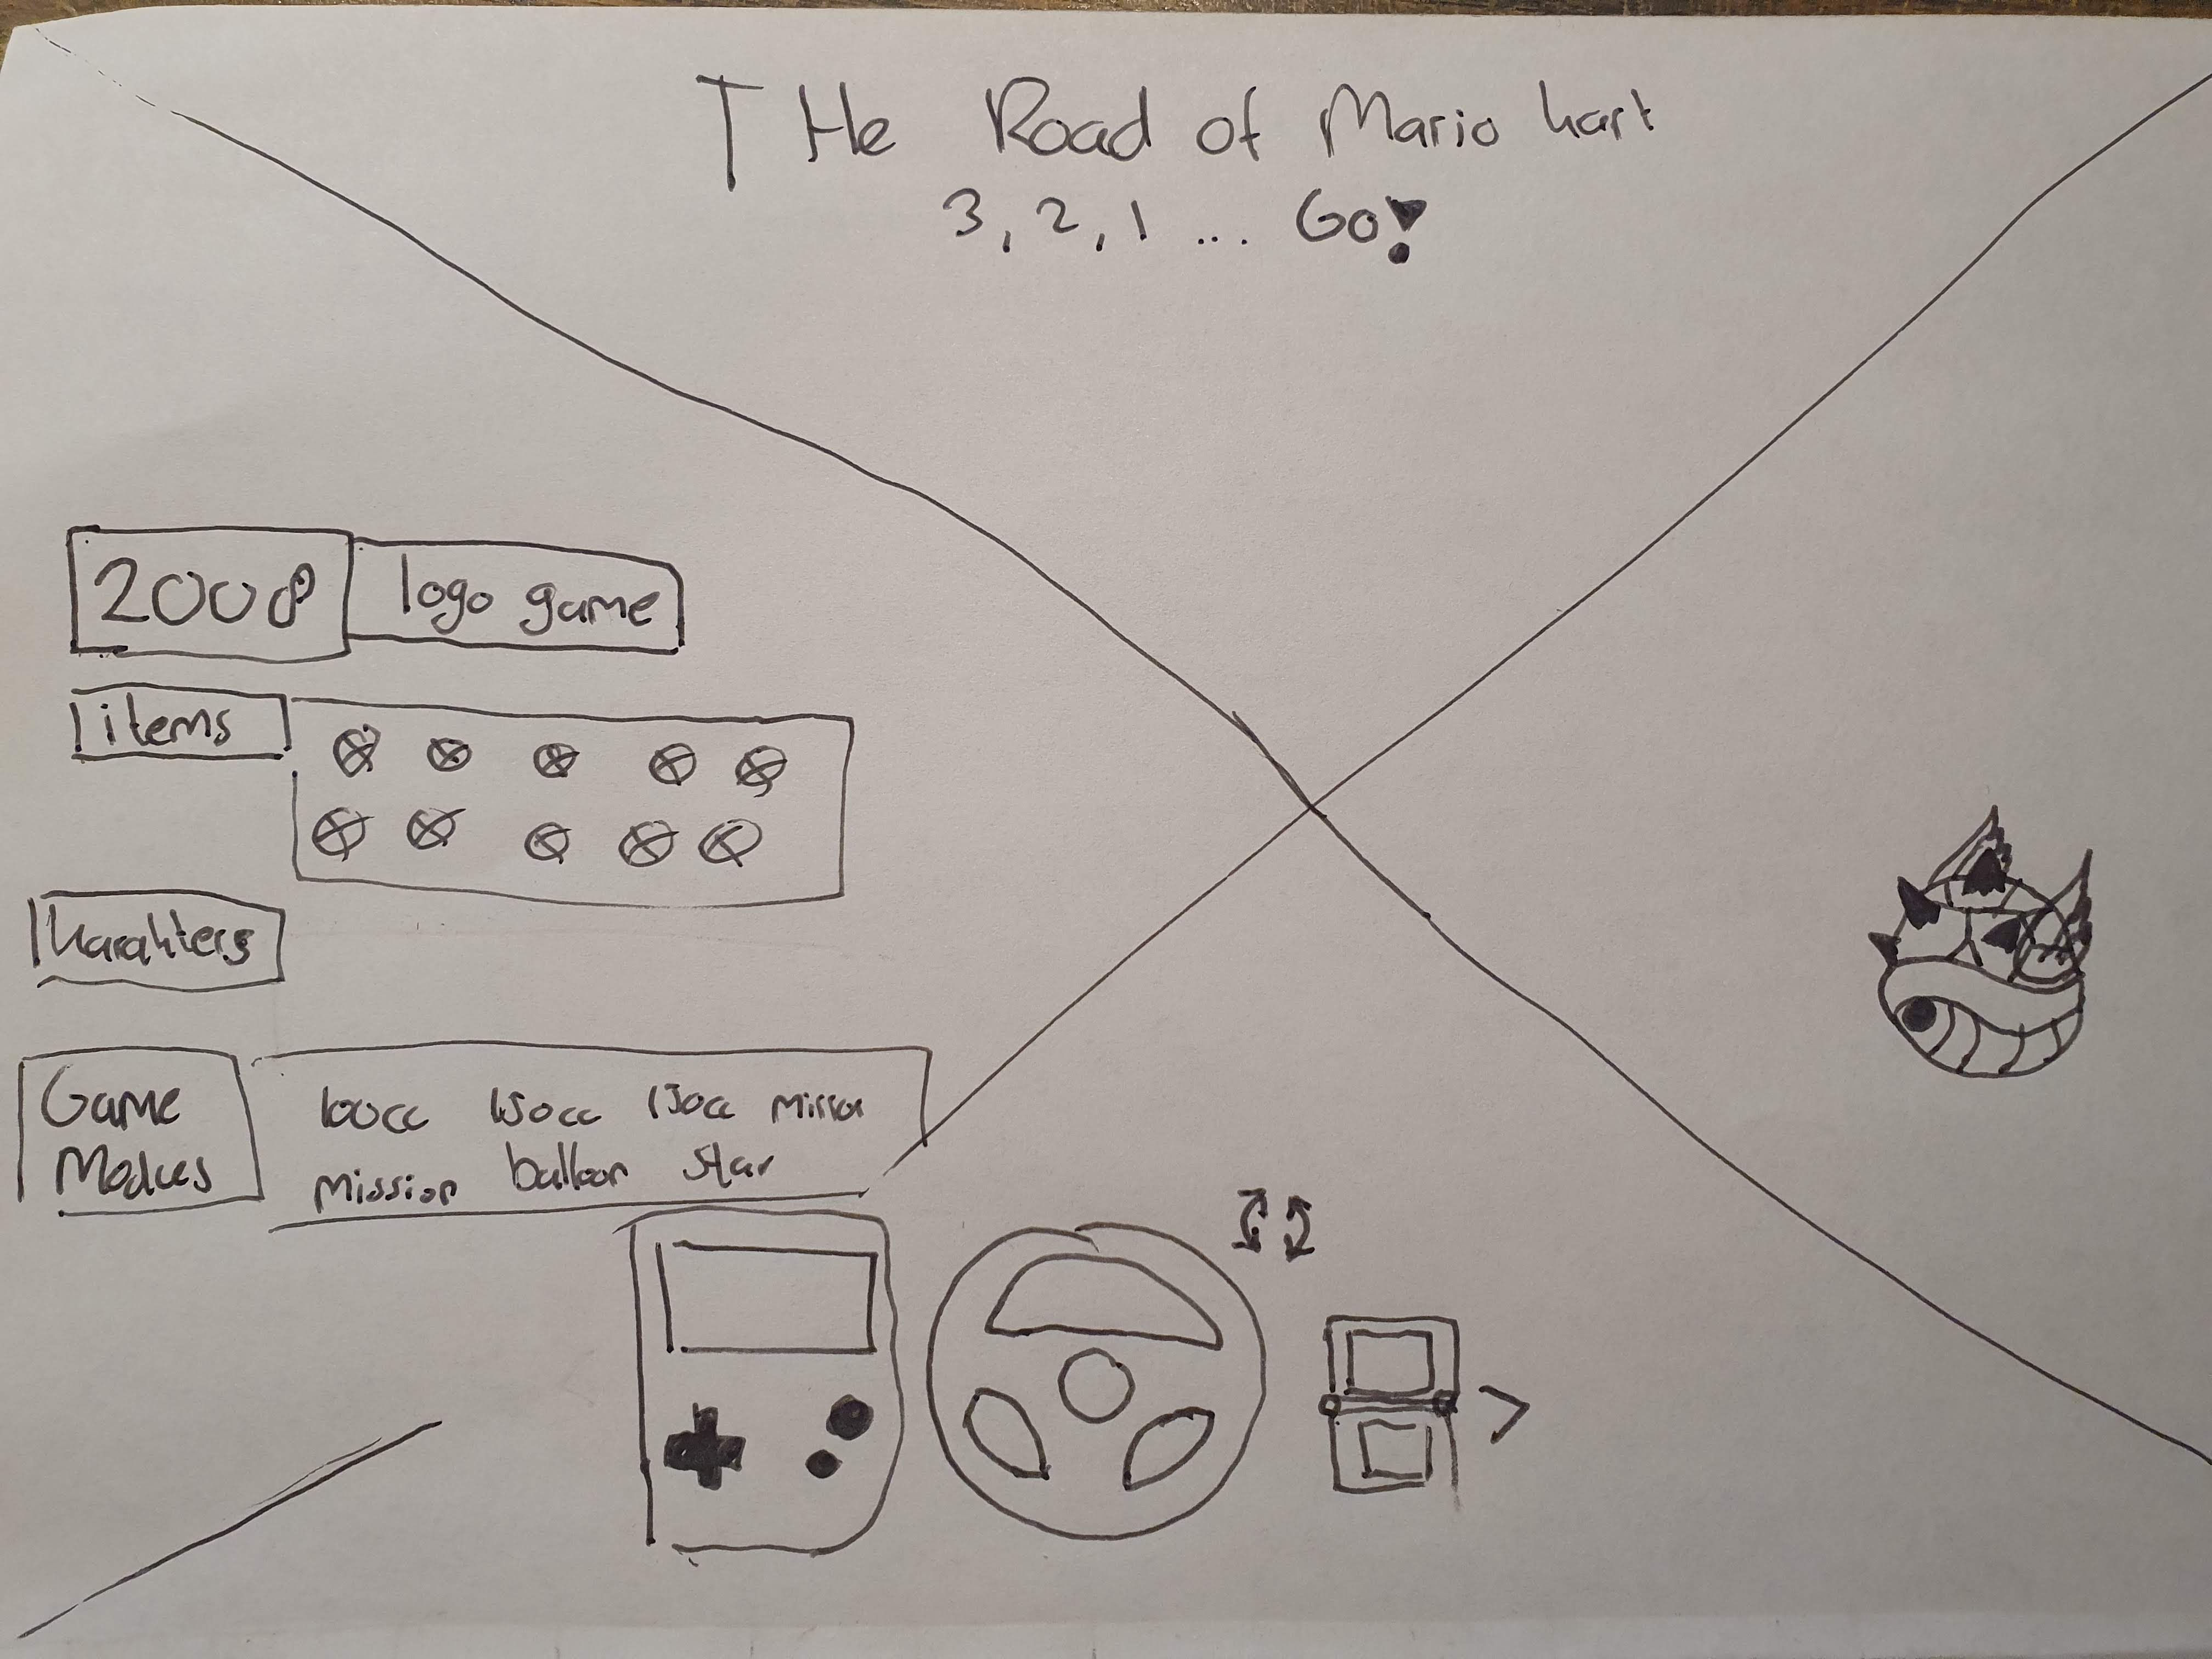 THe Road of Mario kart
3, 2, 1 ... Go!
2008
logo game
items
karakters
Game
Modues
100cc 150cc 150cc mirror
mission balloon star